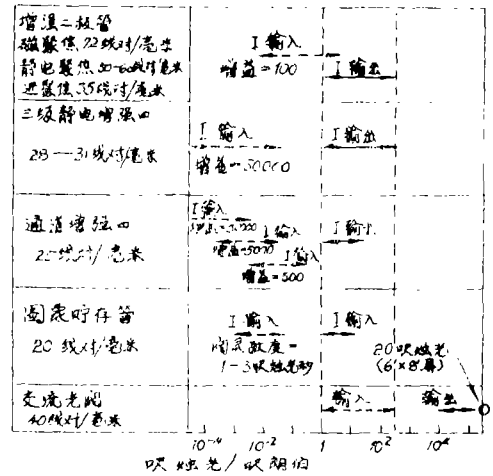 增强二极管
磁聚焦 72线对/毫米
静电聚焦 50-60线对/毫米
近聚焦 35线对/毫米
I 输入
增益=100
I 输出
三级静电增强
28—31线对/毫米
I 输入
增益=50000
I 输出
通道增强
25线对/毫米
I 输入
I 输入
增益=5000
I 输入
增益=500
I 输出
图象贮存管
20 线对/毫米
I 输入
图象敏度=
1-3吹烛光秒
I 输入
20 呎烛光
(6"×8"屏)
交流光阀
40线对/毫米
输入
输出
10⁻⁴ 10⁻² 1 10² 10⁴
呎烛光/呎朗伯